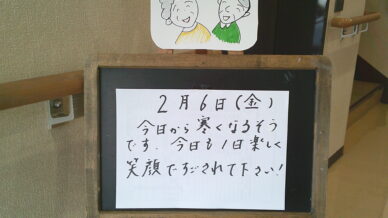 2月6日(金)
今日から寒くなるそう
です。今日も1日楽しく
笑顔ですごされて下さい!